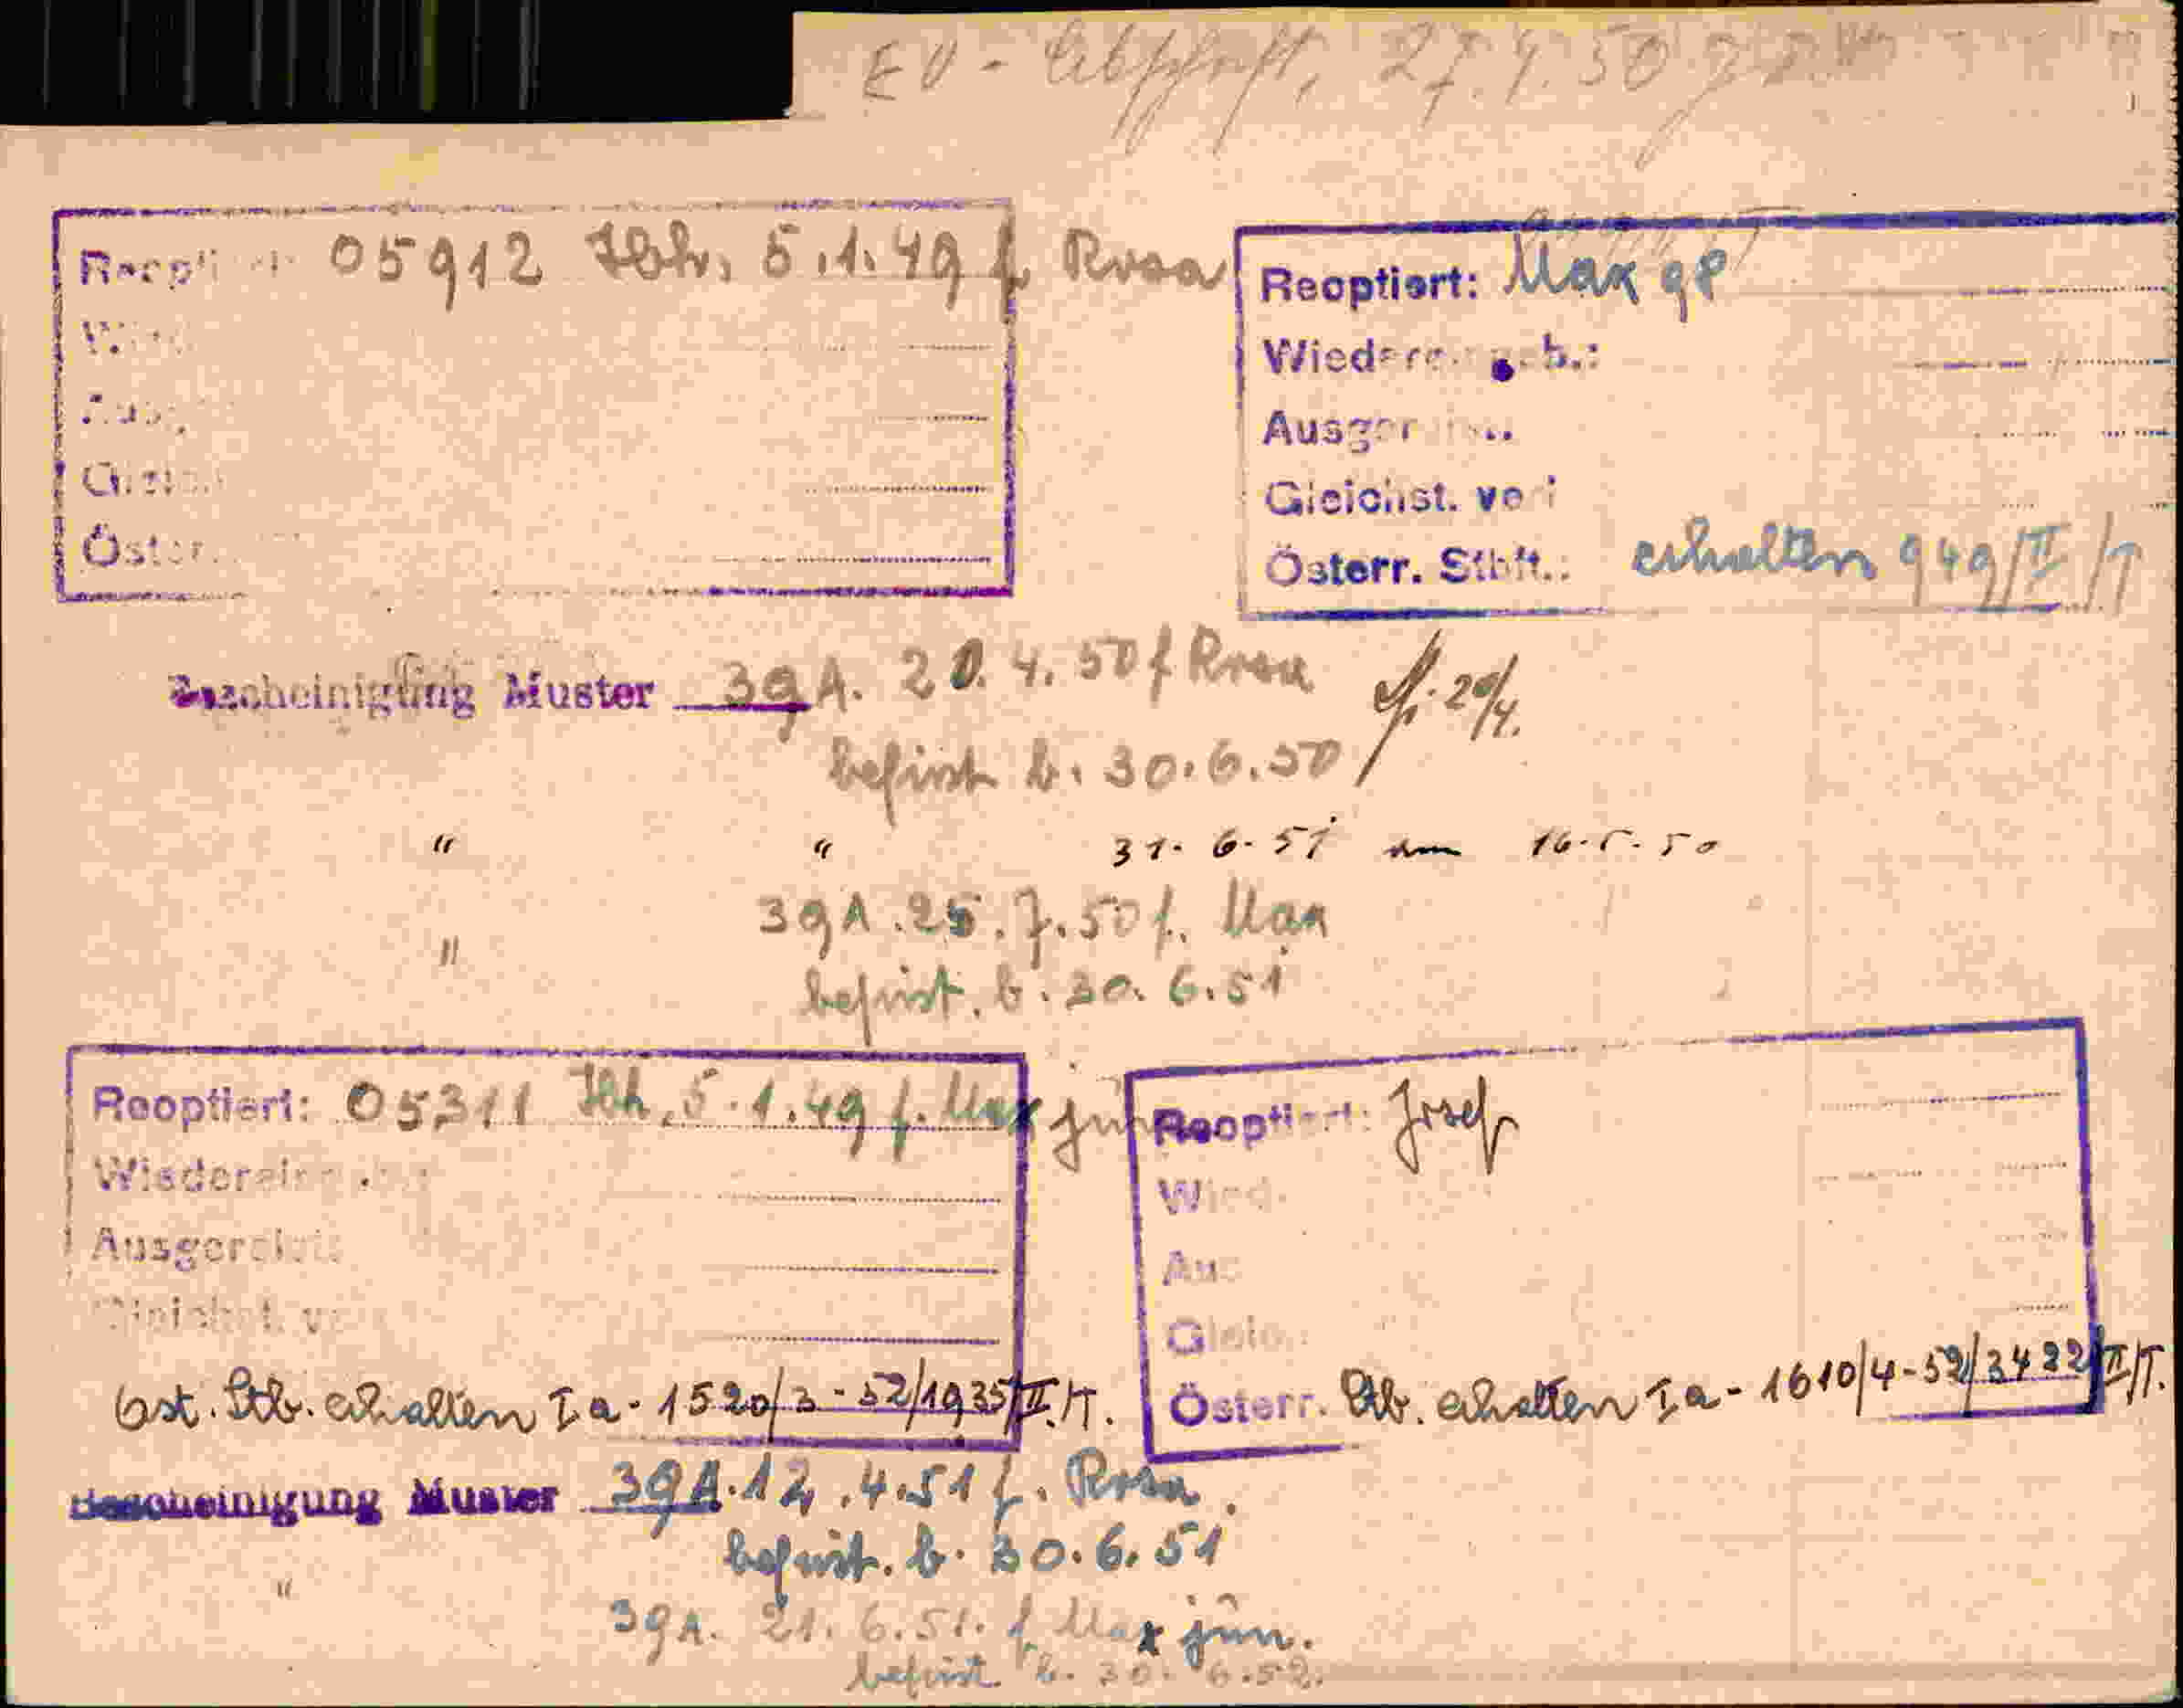 EV - Abschrift, 27.4.50
Reoptiert: 05912 Ibk. 5.1.49 f. Rosa
Öster.
Reoptiert: Max
Wiedere
Ausger
Gleichst. ve
Österr. Stbft.: erhalten 949/II/T
Bescheinigung Muster 39A. 20.4.50 f Rosa 20/4.
befrist b. 30.6.50
" " 31.6.51 am 16.5.50
" 39A. 25.7.50 f. Max
befrist. b. 30.6.51
Reoptiert: 05311 Ibk. 5.1.49 f. Max jun
Wiederein
Ausgereist
Gleichst. v
Öst. Stb. erhalten Ia-1520/3-52/1935/II/T.
Reoptiert: Josef
Wied.
Aus
Gleic
Österr. Stb. erhalten Ia-1610/4-52/3422/II/T.
Bescheinigung Muster 39A. 12.4.51 f. Rosa.
befrist. b. 30.6.51
" 39A. 21.6.51. f Max jun.
befrist b. 30.6.52.